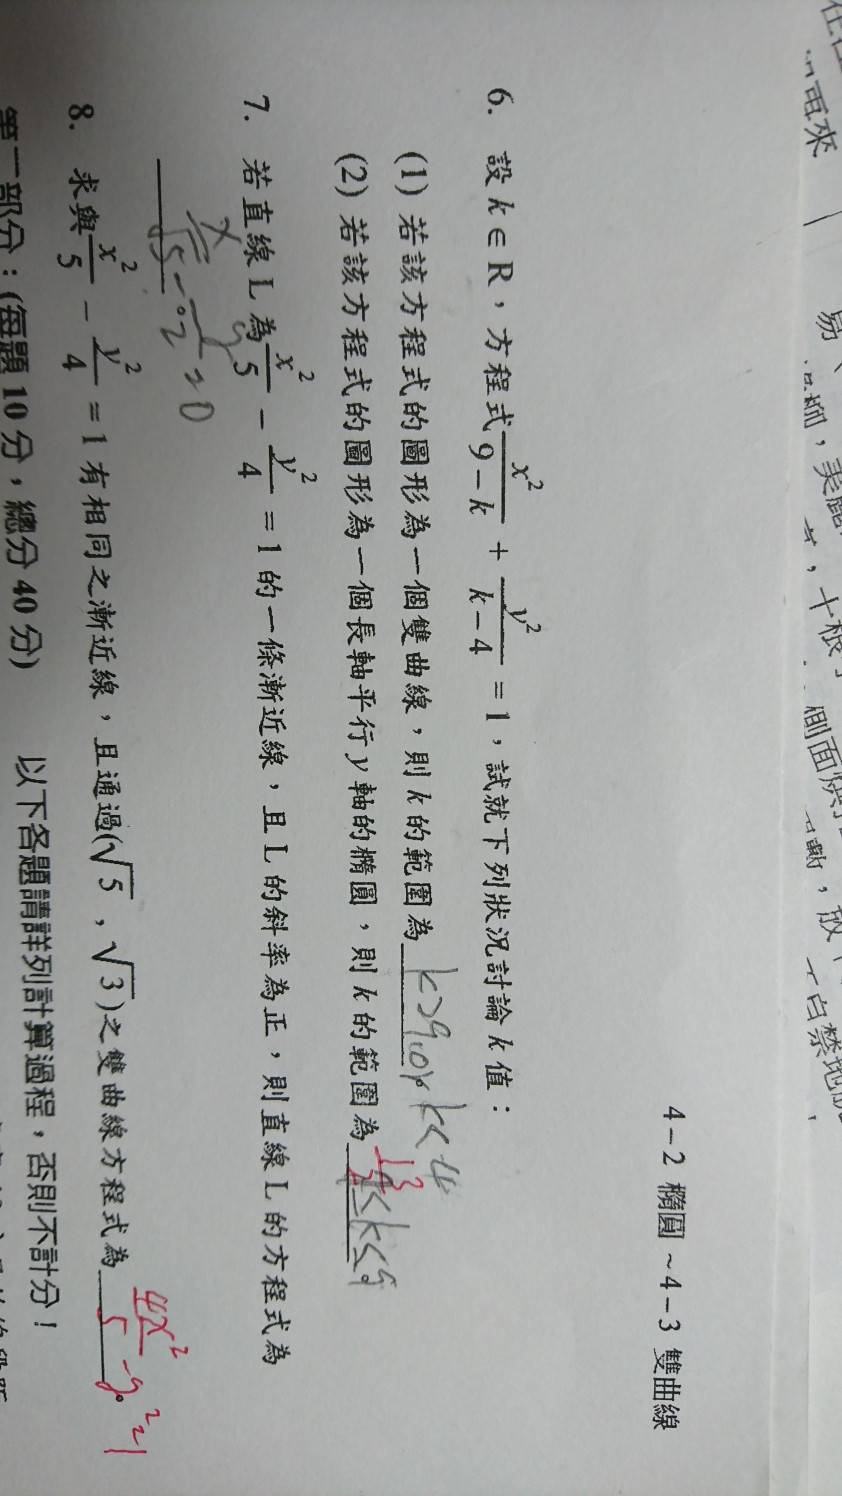 4-2 橢圓~4-3 雙曲線
6. 設 k∈R,方程式 x²/(9-k) + y²/(k-4) = 1,試就下列狀況討論 k 值:
(1) 若該方程式的圖形為一個雙曲線,則 k 的範圍為 k>9 or k<4
(2) 若該方程式的圖形為一個長軸平行 y 軸的橢圓,則 k 的範圍為 13/2<k<9。
7. 若直線 L 為 x²/5 - y²/4 = 1 的一條漸近線,且 L 的斜率為正,則直線 L 的方程式為
x/√5 - y/2 = 0。
8. 求與 x²/5 - y²/4 = 1 有相同之漸近線,且通過(√5,√3)之雙曲線方程式為 4x²/5 - y² = 1。
第二部分:(每題 10 分,總分 40 分) 以下各題請詳列計算過程,否則不計分!
再來
易
美麗
十根
側面烘
放
自禁地